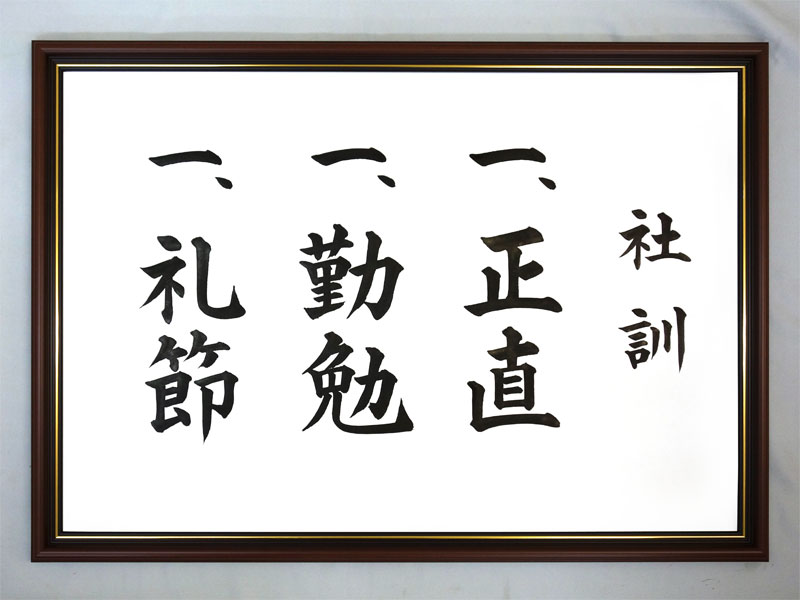 社訓
一、正直
一、勤勉
一、礼節